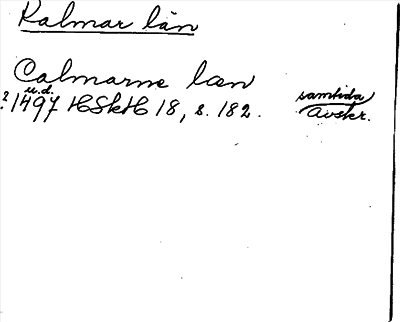 Kalmar län
Calmarne læn
u.d. samtida
? 1497 HSkH 18, s. 182. Avskr.